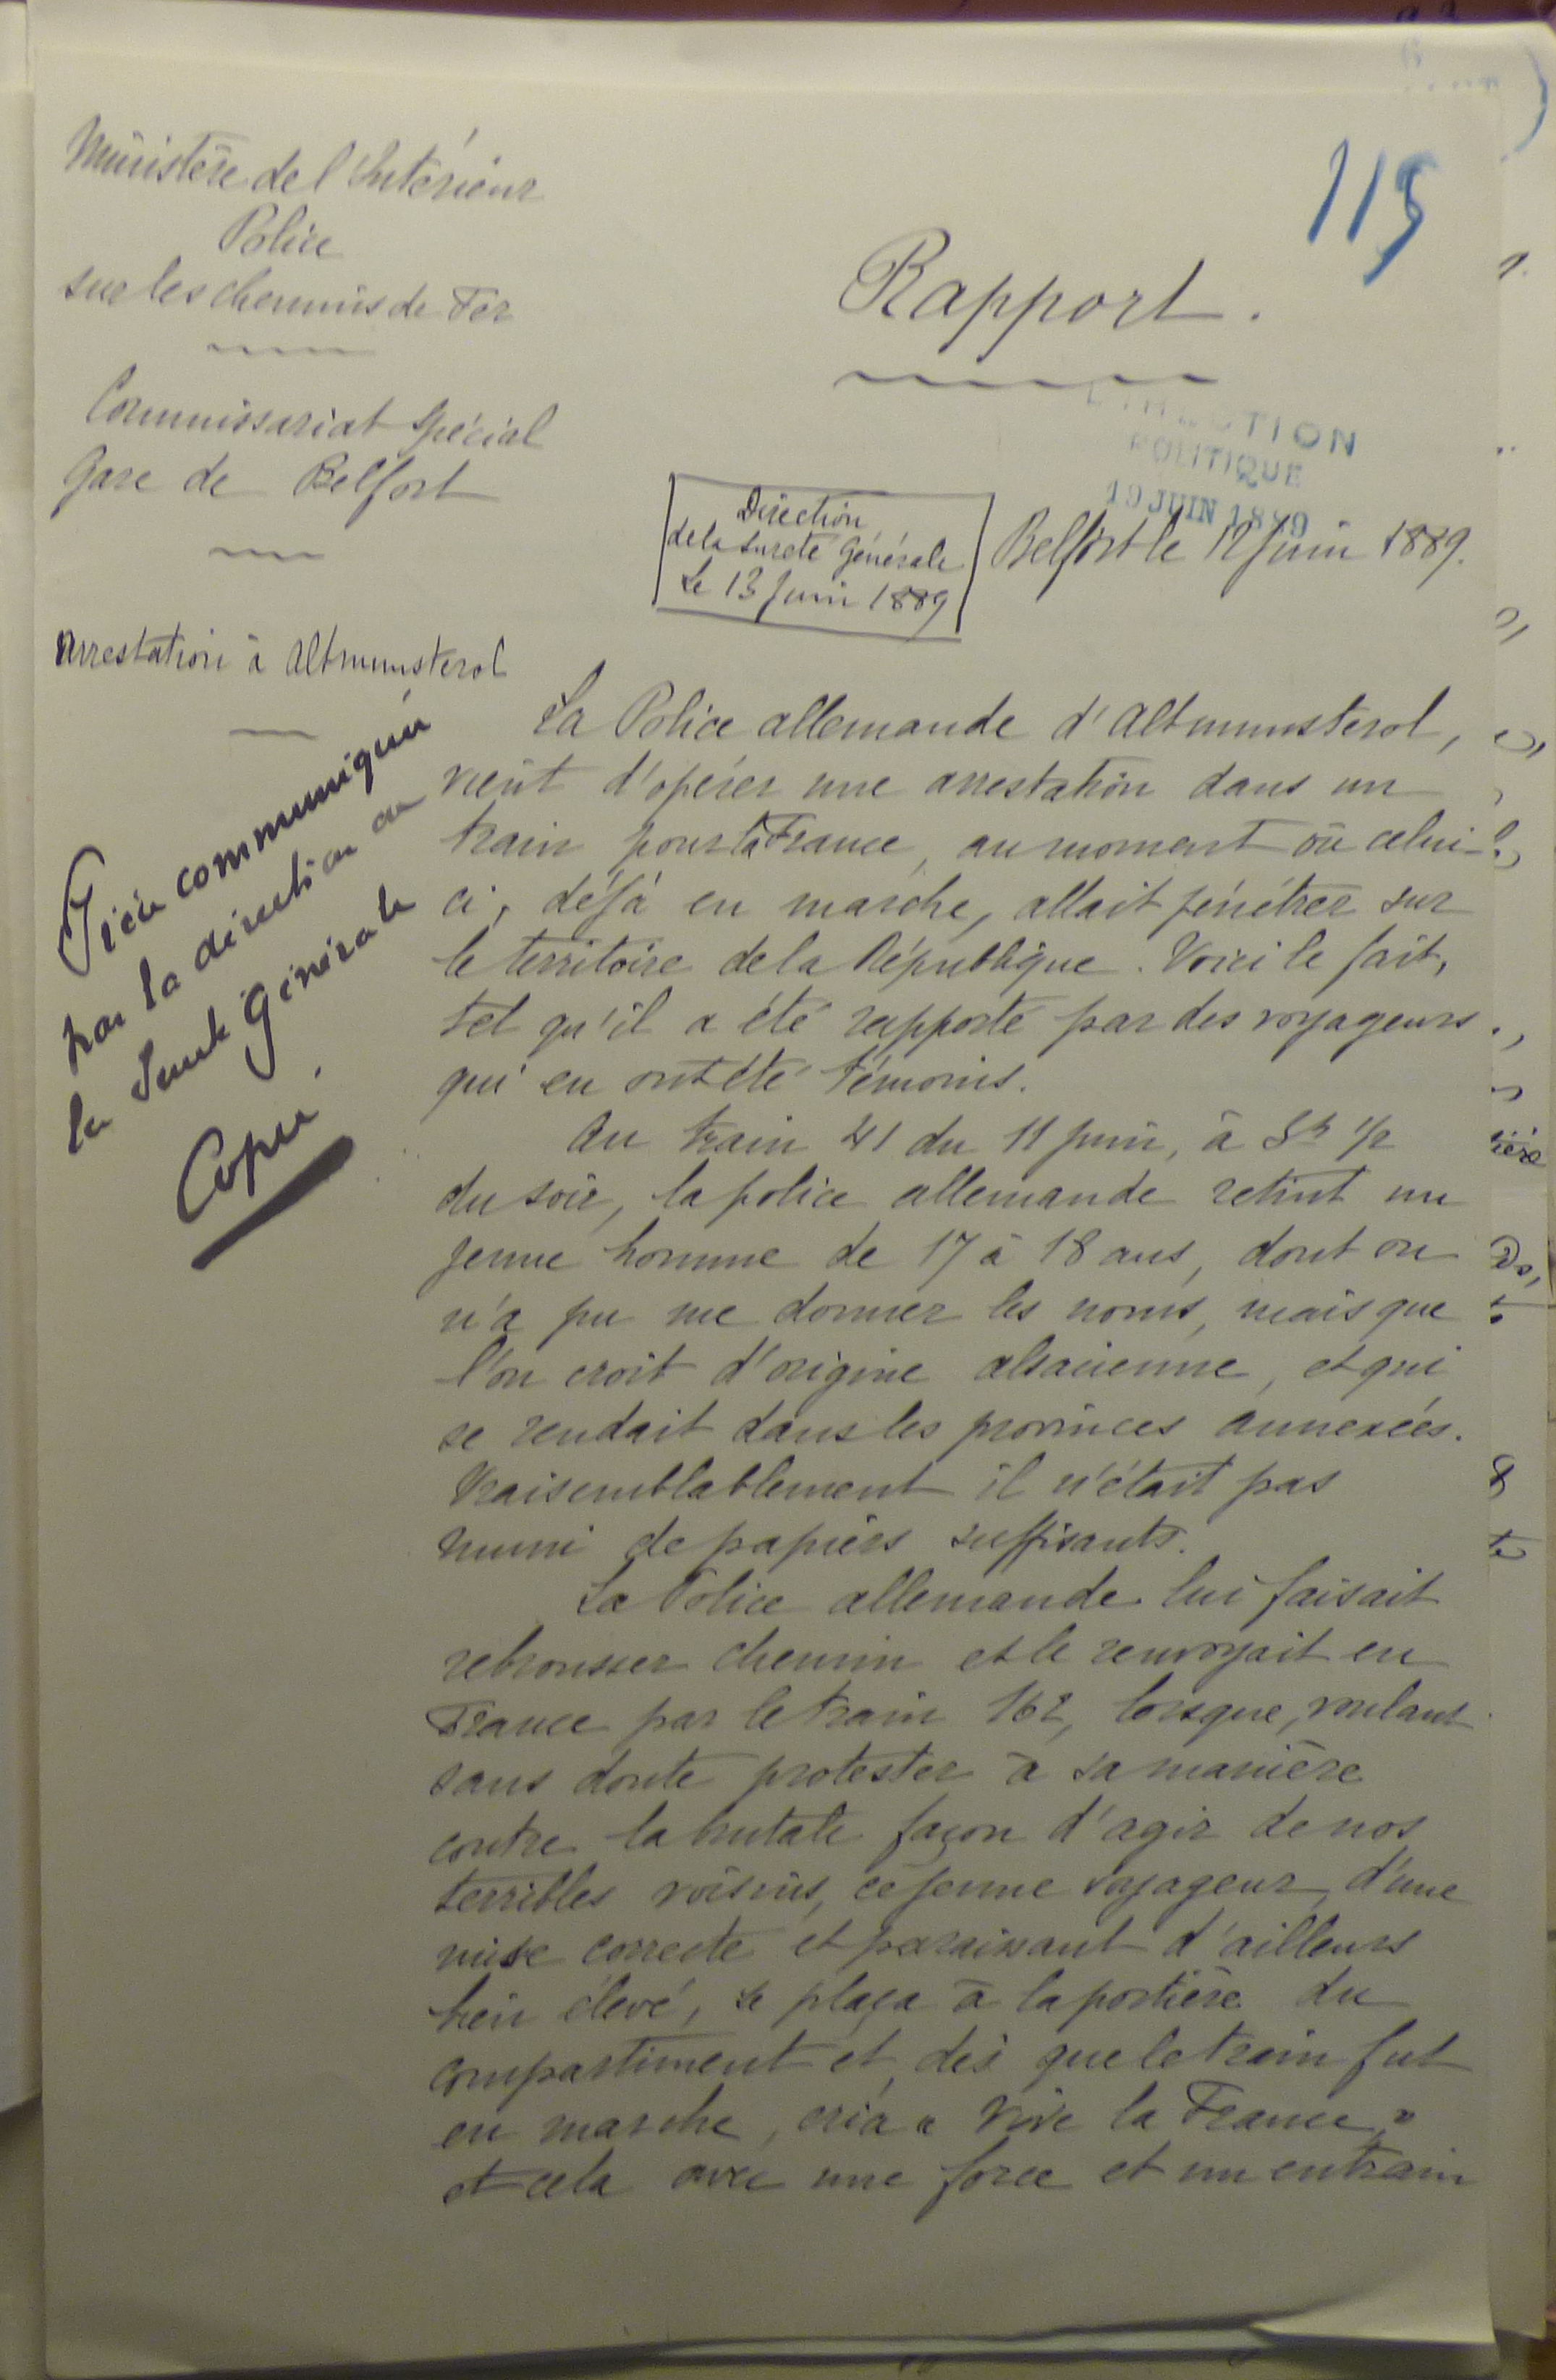 115
Ministère de l'Intérieur
Police
sur les chemins de Fer
Commissariat Spécial
Gare de Belfort
Rapport.
DIRECTION
POLITIQUE
19 JUIN 1889
Direction
de la Sureté Générale
Le 13 Juin 1889
Belfort le 12 Juin 1889.
Arrestation à Altmunsterol
Pièce communiquée
par la direction de
la Sureté Générale
Copié
La Police allemande d'Altmunsterol,
vient d'opérer une arrestation dans un
train pour la France, au moment où celui-
ci, déjà en marche, allait pénétrer sur
le territoire de la République. Voici le fait,
tel qu'il a été rapporté par des voyageurs
qui en ont été témoins.
Au train 41 du 11 juin, à 8h 1/2
du soir, la police allemande retint un
jeune homme de 17 à 18 ans, dont on
n'a pu me donner les noms, mais que
l'on croit d'origine alsacienne, et qui
se rendait dans les provinces annexées.
Vraisemblablement il n'était pas
muni de papiers suffisants.
La Police allemande lui faisait
rebrousser chemin et le renvoyait en
France par le train 162, lorsque, voulant
sans doute protester à sa manière
contre la brutale façon d'agir de nos
terribles voisins, ce jeune voyageur, d'une
mise correcte et paraissant d'ailleurs
bien élevé, se plaça à la portière du
compartiment et, dès que le train fut
en marche, cria « Vive la France »
et cela avec une force et un entrain